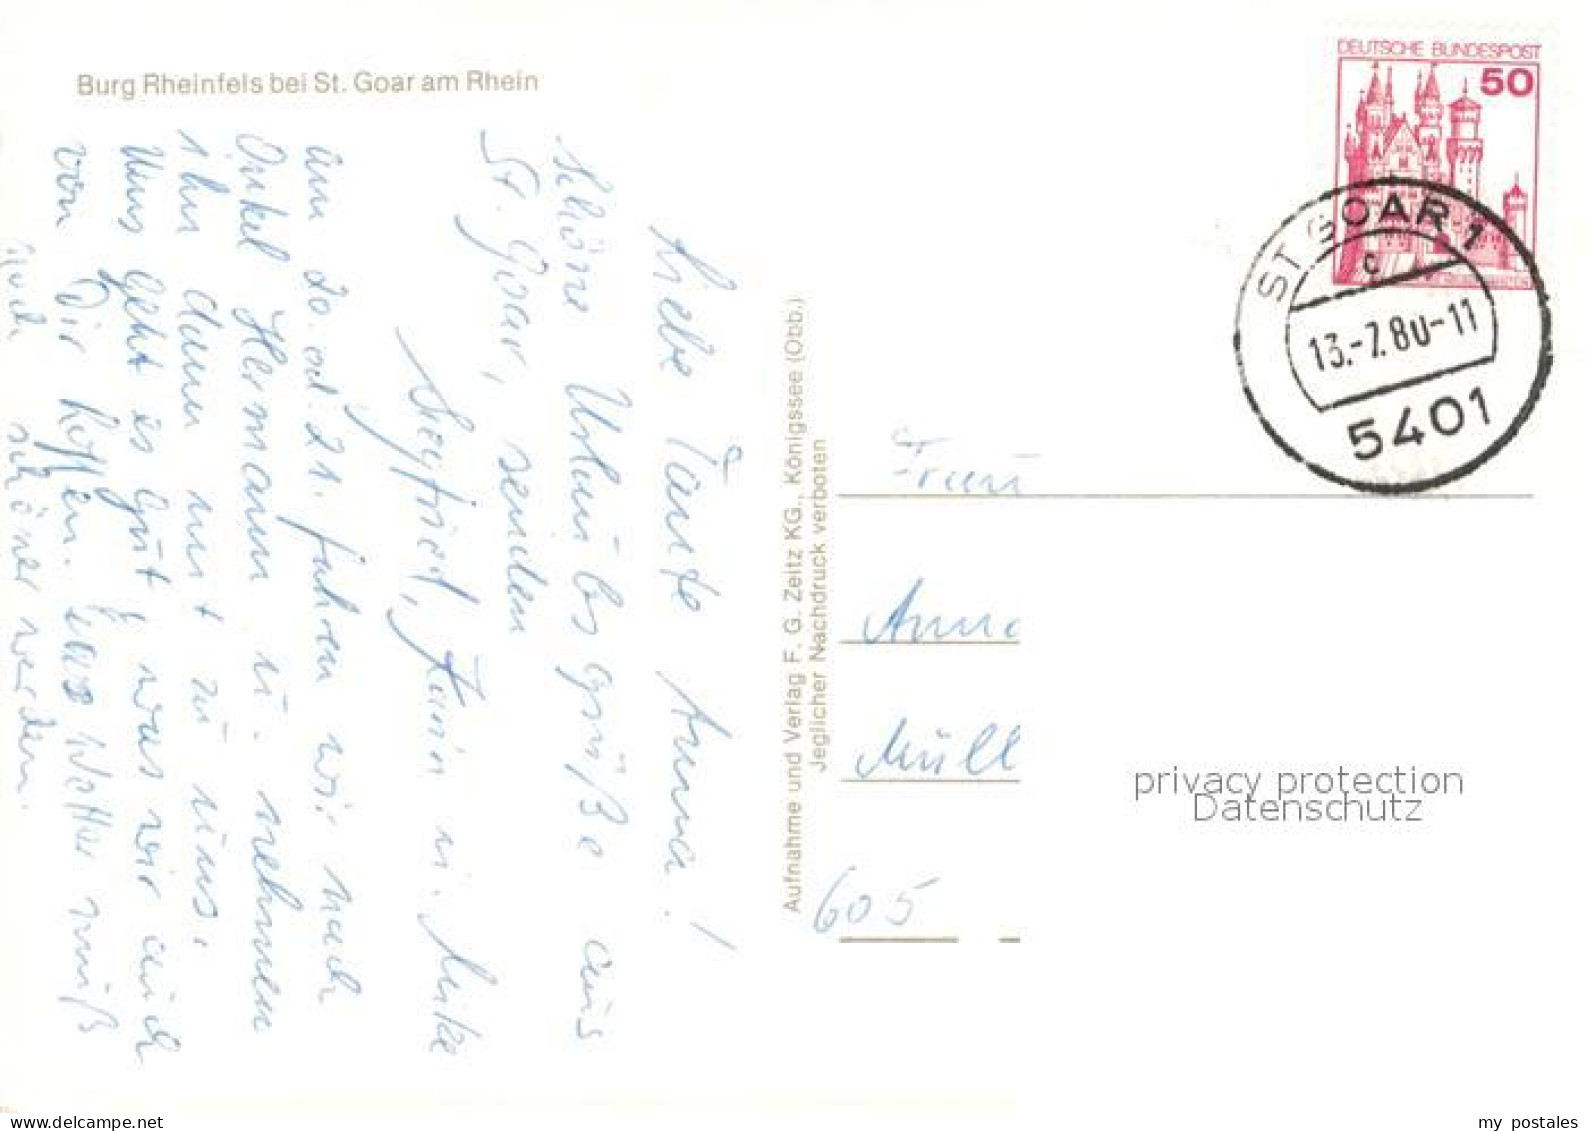 Burg Rheinfels bei St. Goar am Rhein
Liebe Tante Anna!
schöne Urlaubsgrüße aus
St. Goar, senden
Siegfried, Karin u. Mike
am 20. od. 21. fahren wir nach
Onkel Hermann u. nehmen
ihn dann mit zu uns.
Uns geht es gut, was wir auch
von Dir hoffen. Das Wetter muß
noch schöner werden.
Aufnahme und Verlag F. G. Zeitz KG., Königssee (Obb.)
Jeglicher Nachdruck verboten
DEUTSCHE BUNDESPOST
50
ST GOAR 1
c
13.-7.80-11
5401
Frau
Anna
Müll
605
privacy protection
Datenschutz
delcampe.net
my_postales